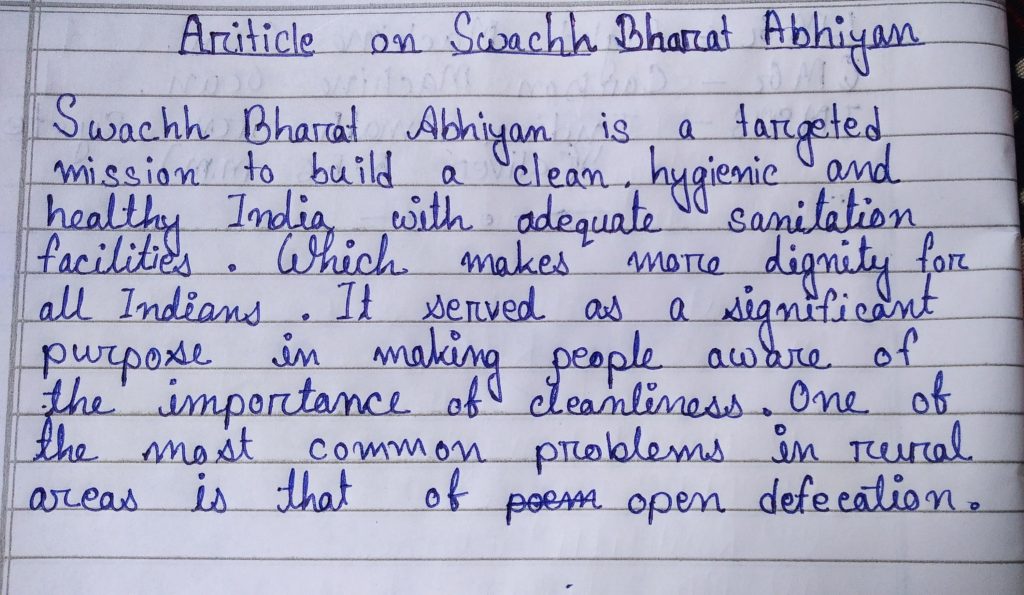 Ariticle on Swachh Bharat Abhiyan
Swachh Bharat Abhiyan is a targeted
mission to build a clean, hygienic and
healthy India with adequate sanitation
facilities. Which makes more dignity for
all Indians. It served as a significant
purpose in making people aware of
the importance of cleanliness. One of
the most common problems in rural
areas is that of poem open defecation.